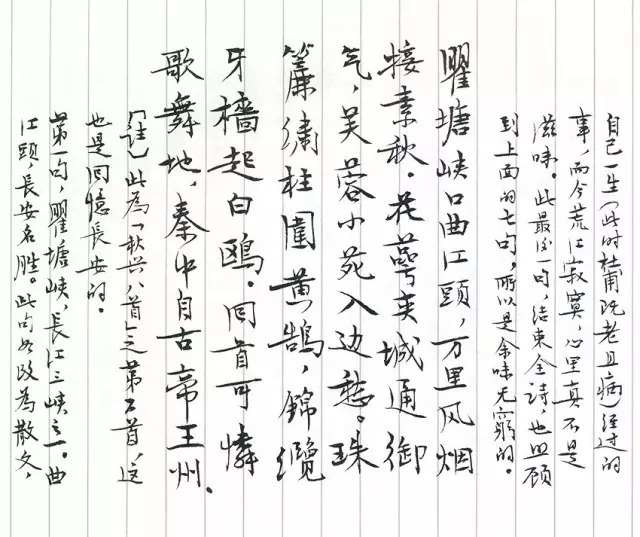 自己一生（此时杜甫既老且病）經过的
事，而今荒江寂寞，心里真不是
滋味。此最后一句，结束全诗，也回顾
到上面的七句，所以是余味无窮的。
瞿塘峡口曲江頭，万里风烟
接素秋。花萼夹城通御
气，芙蓉小苑入边愁。珠
簾繡柱圍黄鵠，錦纜
牙檣起白鷗。回首可憐
歌舞地，秦中自古帝王州．
〔註〕此為「秋兴八首」之第六首，这
也是回憶長安的。
第一句，瞿塘峡，長江三峡之一。曲
江頭，長安名勝。此句如改為散文，